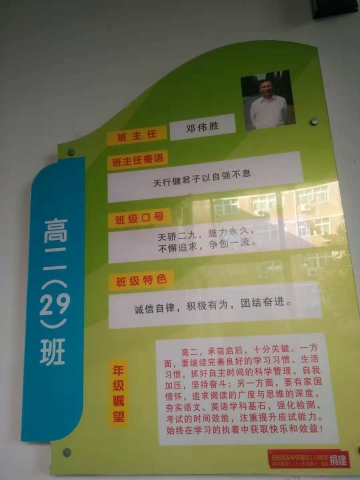 高二（29）班
班主任
邓伟胜
班主任寄语
天行健君子以自强不息
班级口号
天骄二九，魅力永久，
不懈追求，争创一流。
班级特色
诚信自律，积极有为，团结奋进。
年级瞩望
高二，承前启后，十分关键。一方
面，要继续完善良好的学习习惯、生活
习惯，抓好自主时间的科学管理，自我
加压，坚持奋斗；另一方面，要有家国
情怀，追求阅读的广度与思维的深度，
夯实语文、英语学科基石，强化检测、
考试的时间效能，注重提升应试能力。
始终在学习的执着中获取快乐和效益！
捐建